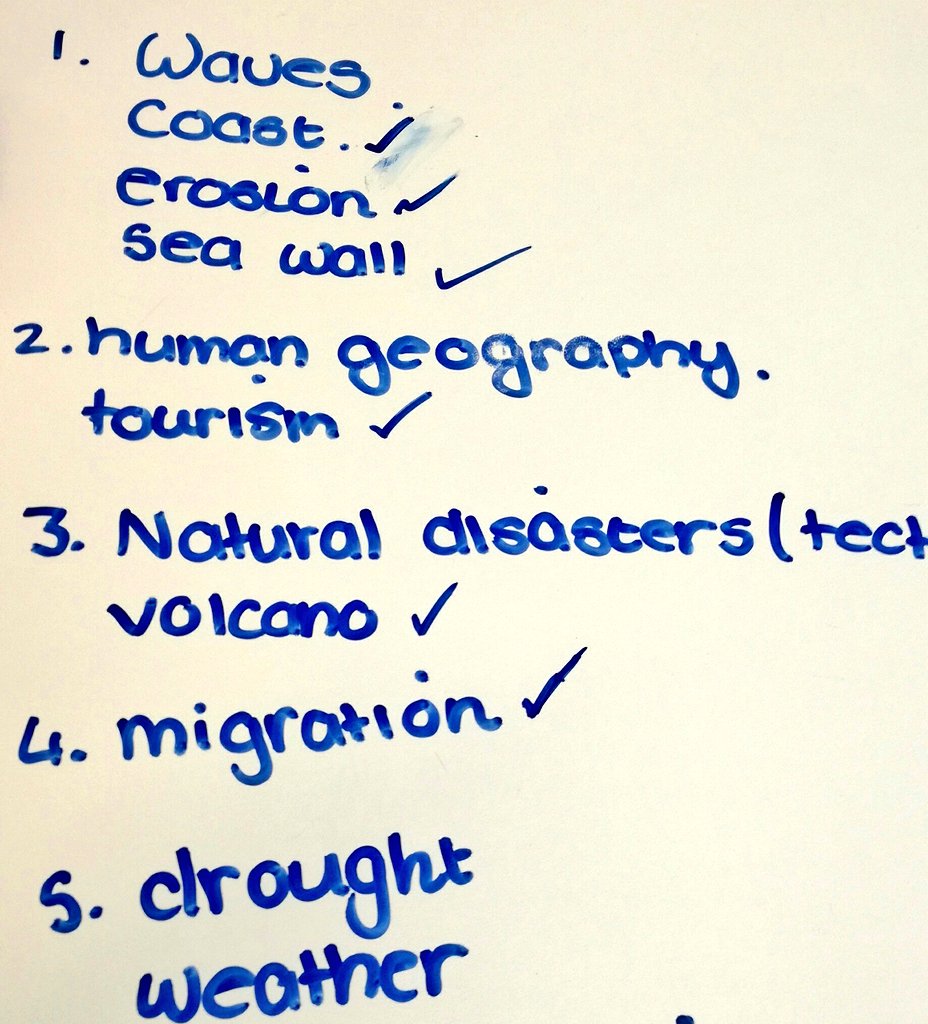 1. Waves.
Coast. ✓
erosion ✓
sea wall ✓
2. human geography.
tourism ✓
3. Natural disasters (tect
volcano ✓
4. migration ✓
5. drought
weather